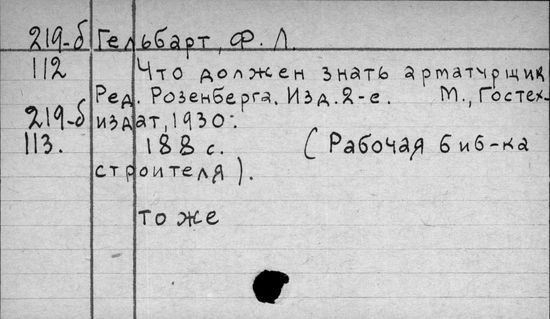 219-б Гельбарт, Ф. Л.
112 Что должен знать арматурщик
Ред. Розенберга. Изд. 2-е. М., Гостех-
219-б издат, 1930.
113. 188 с. (Рабочая биб-ка
строителя).
то же